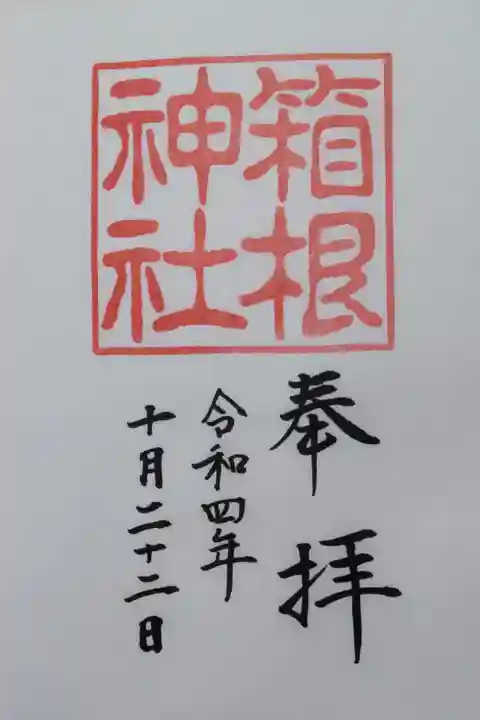 箱根
神社
奉拝
令和四年
十月二十二日